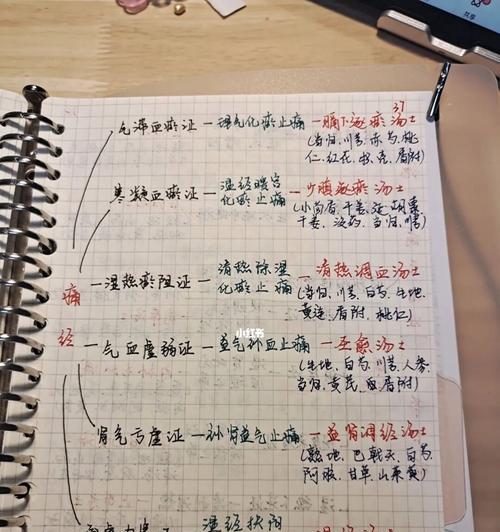 共享
37
气滞血瘀证 — 理气化瘀止痛 — 膈下逐瘀汤±
(当归、川芎、赤芍、桃
仁、红花、枳壳、香附)
寒凝血瘀证 — 温经暖宫
化瘀止痛 — 少腹逐瘀汤±
(小茴香、干姜、延胡索
干姜、没药、当归、川芎)
痛经
湿热瘀阻证 — 清热除湿
化瘀止痛 — 清热调血汤±
(当归、川芎、白芍、生地
黄连、香附、桃仁)
小红书
气血虚弱证 — 益气补血止痛 — 圣愈汤±
(生地、白芍、川芎、人参、
当归、黄芪、香附)
肾气亏虚证 — 补肾益气止痛 — 益肾调经汤±
(熟地、巴戟天、白芍
阿胶、甘草、山茱萸)
温经扶阳